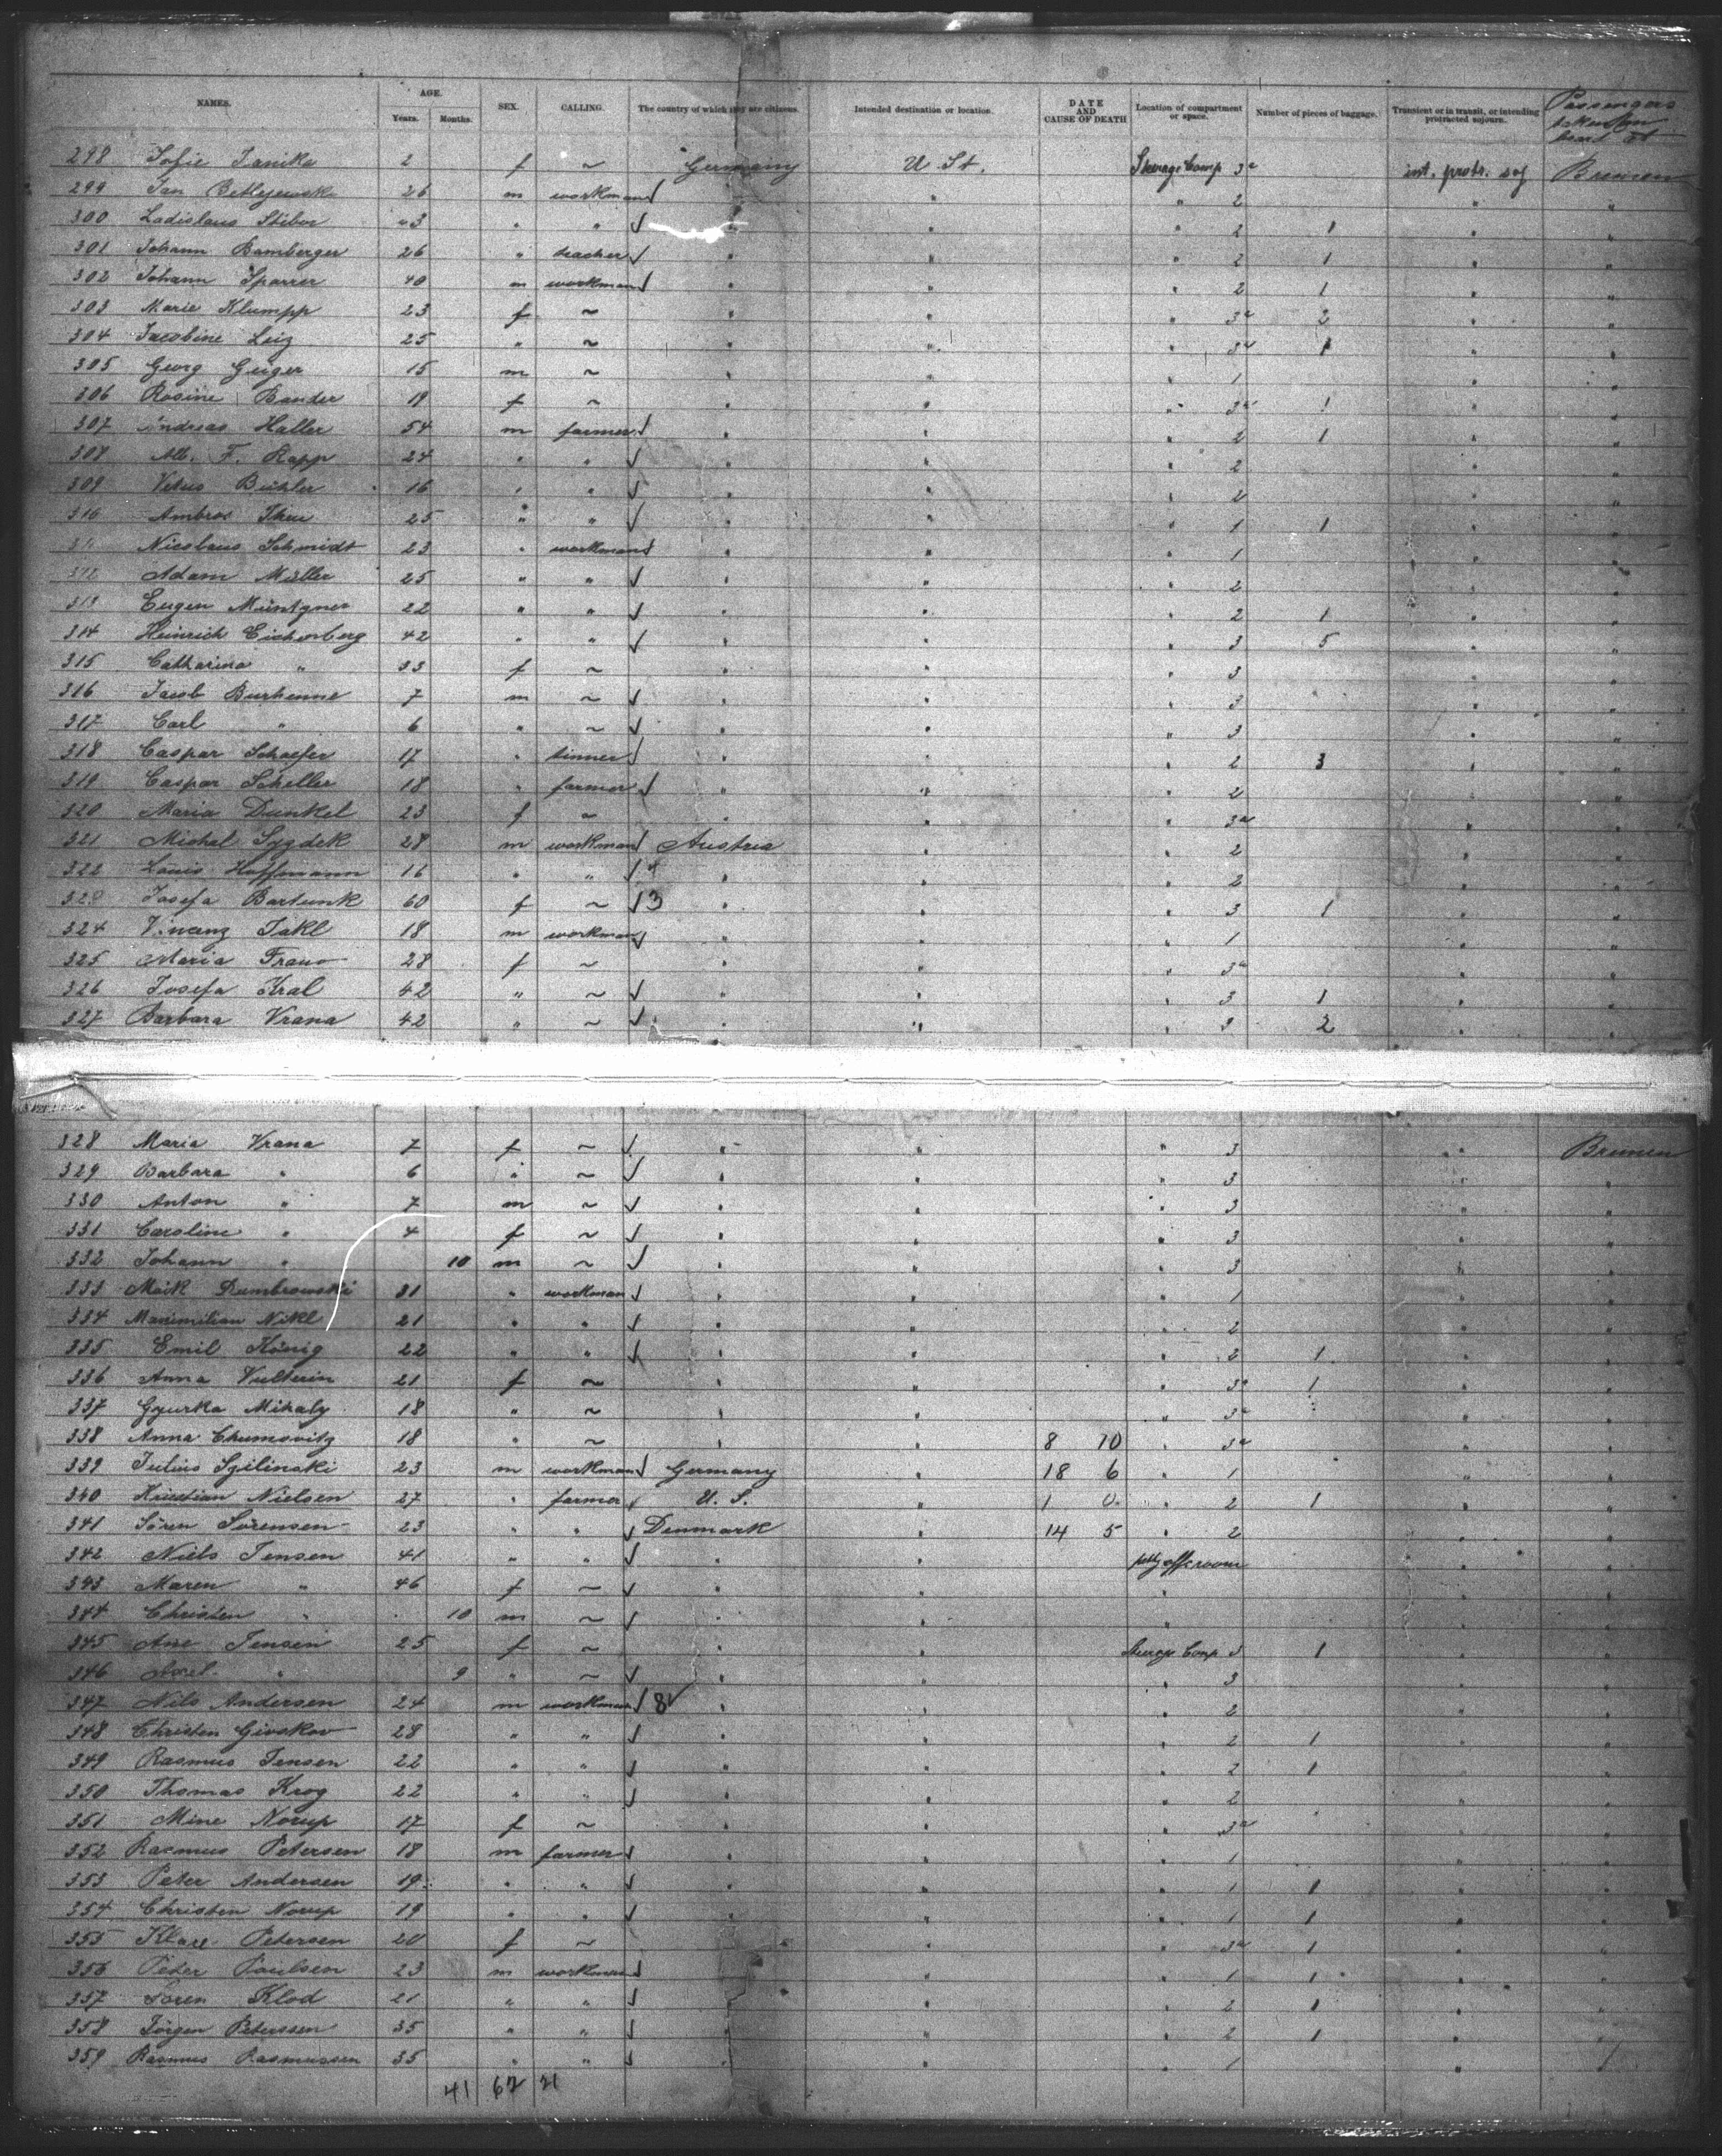 NAMES. AGE. SEX. CALLING. The country of which they are citizens. Intended destination or location. DATE AND CAUSE OF DEATH Location of compartment or space. Number of pieces of baggage. Transient or in transit, or intending protracted sojourn. Passengers taken on board at
Years. Months.
298 Sofie Janika 2 f ~ Germany U St. Steerage Comp 3a int. protr. soj Bremen
299 Jan 26 m workman " " " 2 " "
300 Ladislaus Stibor 23 " " " " " 2 1 " "
301 Johann Bamberger 26 " teacher " " " 2 1 " "
302 Johann Sparrer 40 m workman " " " 2 1 " "
303 Marie Klumpp 23 f ~ " " " 3a 2 " "
304 Jacobine Leiz 25 " ~ " " " 3a 1 " "
305 Georg Geiger 15 m ~ " " " 1 " "
306 Rosine Bander 19 f ~ " " " 3a 1 " "
307 Andreas Haller 54 m farmer " " " 2 1 " "
308 Alb. F. Rapp 24 " " " " " 2 " "
309 Vitus Bühler 16 " " " " " 2 " "
310 Ambros 25 " " " " " 1 1 " "
311 Nicolaus Schmidt 23 " workman " " " 1 " "
312 Adam Müller 25 " " " " " 2 " "
313 Eugen 22 " " " " " 2 1 " "
314 Heinrich Eichenberg 42 " " " " " 3 5 " "
315 Catharina " 33 f ~ " " " 3 " "
316 Jacob Burhenne 7 m ~ " " " 3 " "
317 Carl " 6 " ~ " " " 3 " "
318 Caspar Schaefer 17 " tinner " " " 2 3 " "
319 Caspar Scheller 18 " farmer " " " 2 " "
320 Maria Dunkel 23 f ~ " " " 3a " "
321 Michal Sygdek 28 m workman Austria " " 2 " "
322 Louis Hoffmann 16 " " 4 " " " 2 " "
323 Josefa Bartunk 60 f ~ 3 " " " 3 1 " "
324 Vincenz Jakl 18 m workman " " " 1 " "
325 Maria 28 f ~ " " " 3a " "
326 Josefa Kral 42 " ~ " " " 3 1 " "
327 Barbara Vrana 42 " ~ " " " 3 2 " "
328 Maria Vrana 7 f ~ " " " 3 " Bremen
329 Barbara " 6 " ~ " " " 3 " "
330 Anton " 7 m ~ " " " 3 " "
331 Caroline " 4 f ~ " " " 3 " "
332 Johann " 10 m ~ " " " 3 " "
333 Dumbrowski 31 " workman " " " 1 " "
334 Maximilian Nikl 21 " " " " " 2 " "
335 Emil König 22 " " " " " 2 1 " "
336 Anna Vulterin 21 f ~ " " " 3a 1 " "
337 Gyurka Mihaly 18 " ~ " " " 3a " "
338 Anna Chumovitz 18 " ~ " " 8 10 " 3a " "
339 Julius Szilinski 23 m workman Germany " 18 6 " 1 " "
340 Kristian Nielsen 27 " farmer U. S. " 1 0 " 2 1 " "
341 Sören Sörensen 23 " " Denmark " 14 5 " 2 " "
342 Niels Jensen 41 " " " " petty offc room " "
343 Maren " 46 f ~ " " " " "
344 Christen " 10 m ~ " " " " "
345 Ane Jensen 25 f ~ " " Steerage Comp 3 1 " "
346 Axel " 9 " ~ " " " 3 " "
347 Nils Andersen 24 m workman 8 " " " 2 " "
348 Christen Givskov 28 " " " " " 2 1 " "
349 Rasmus Jensen 22 " " " " " 2 1 " "
350 Thomas Krog 22 " " " " " 2 " "
351 Mine Norup 17 f ~ " " " 3a " "
352 Rasmus Petersen 18 m farmer " " " 1 " "
353 Peter Andersen 19 " " " " " 1 1 " "
354 Christen Norup 19 " " " " " 1 1 " "
355 Klare Petersen 20 f ~ " " " 3a 1 " "
356 Peder Poulsen 23 m workman " " " 1 1 " "
357 Sören Klod 21 " " " " " 2 1 " "
358 Jörgen Peterssen 35 " " " " " 2 1 " "
359 Rasmus Rasmussen 35 " " " " " 1 " "
41 62 21